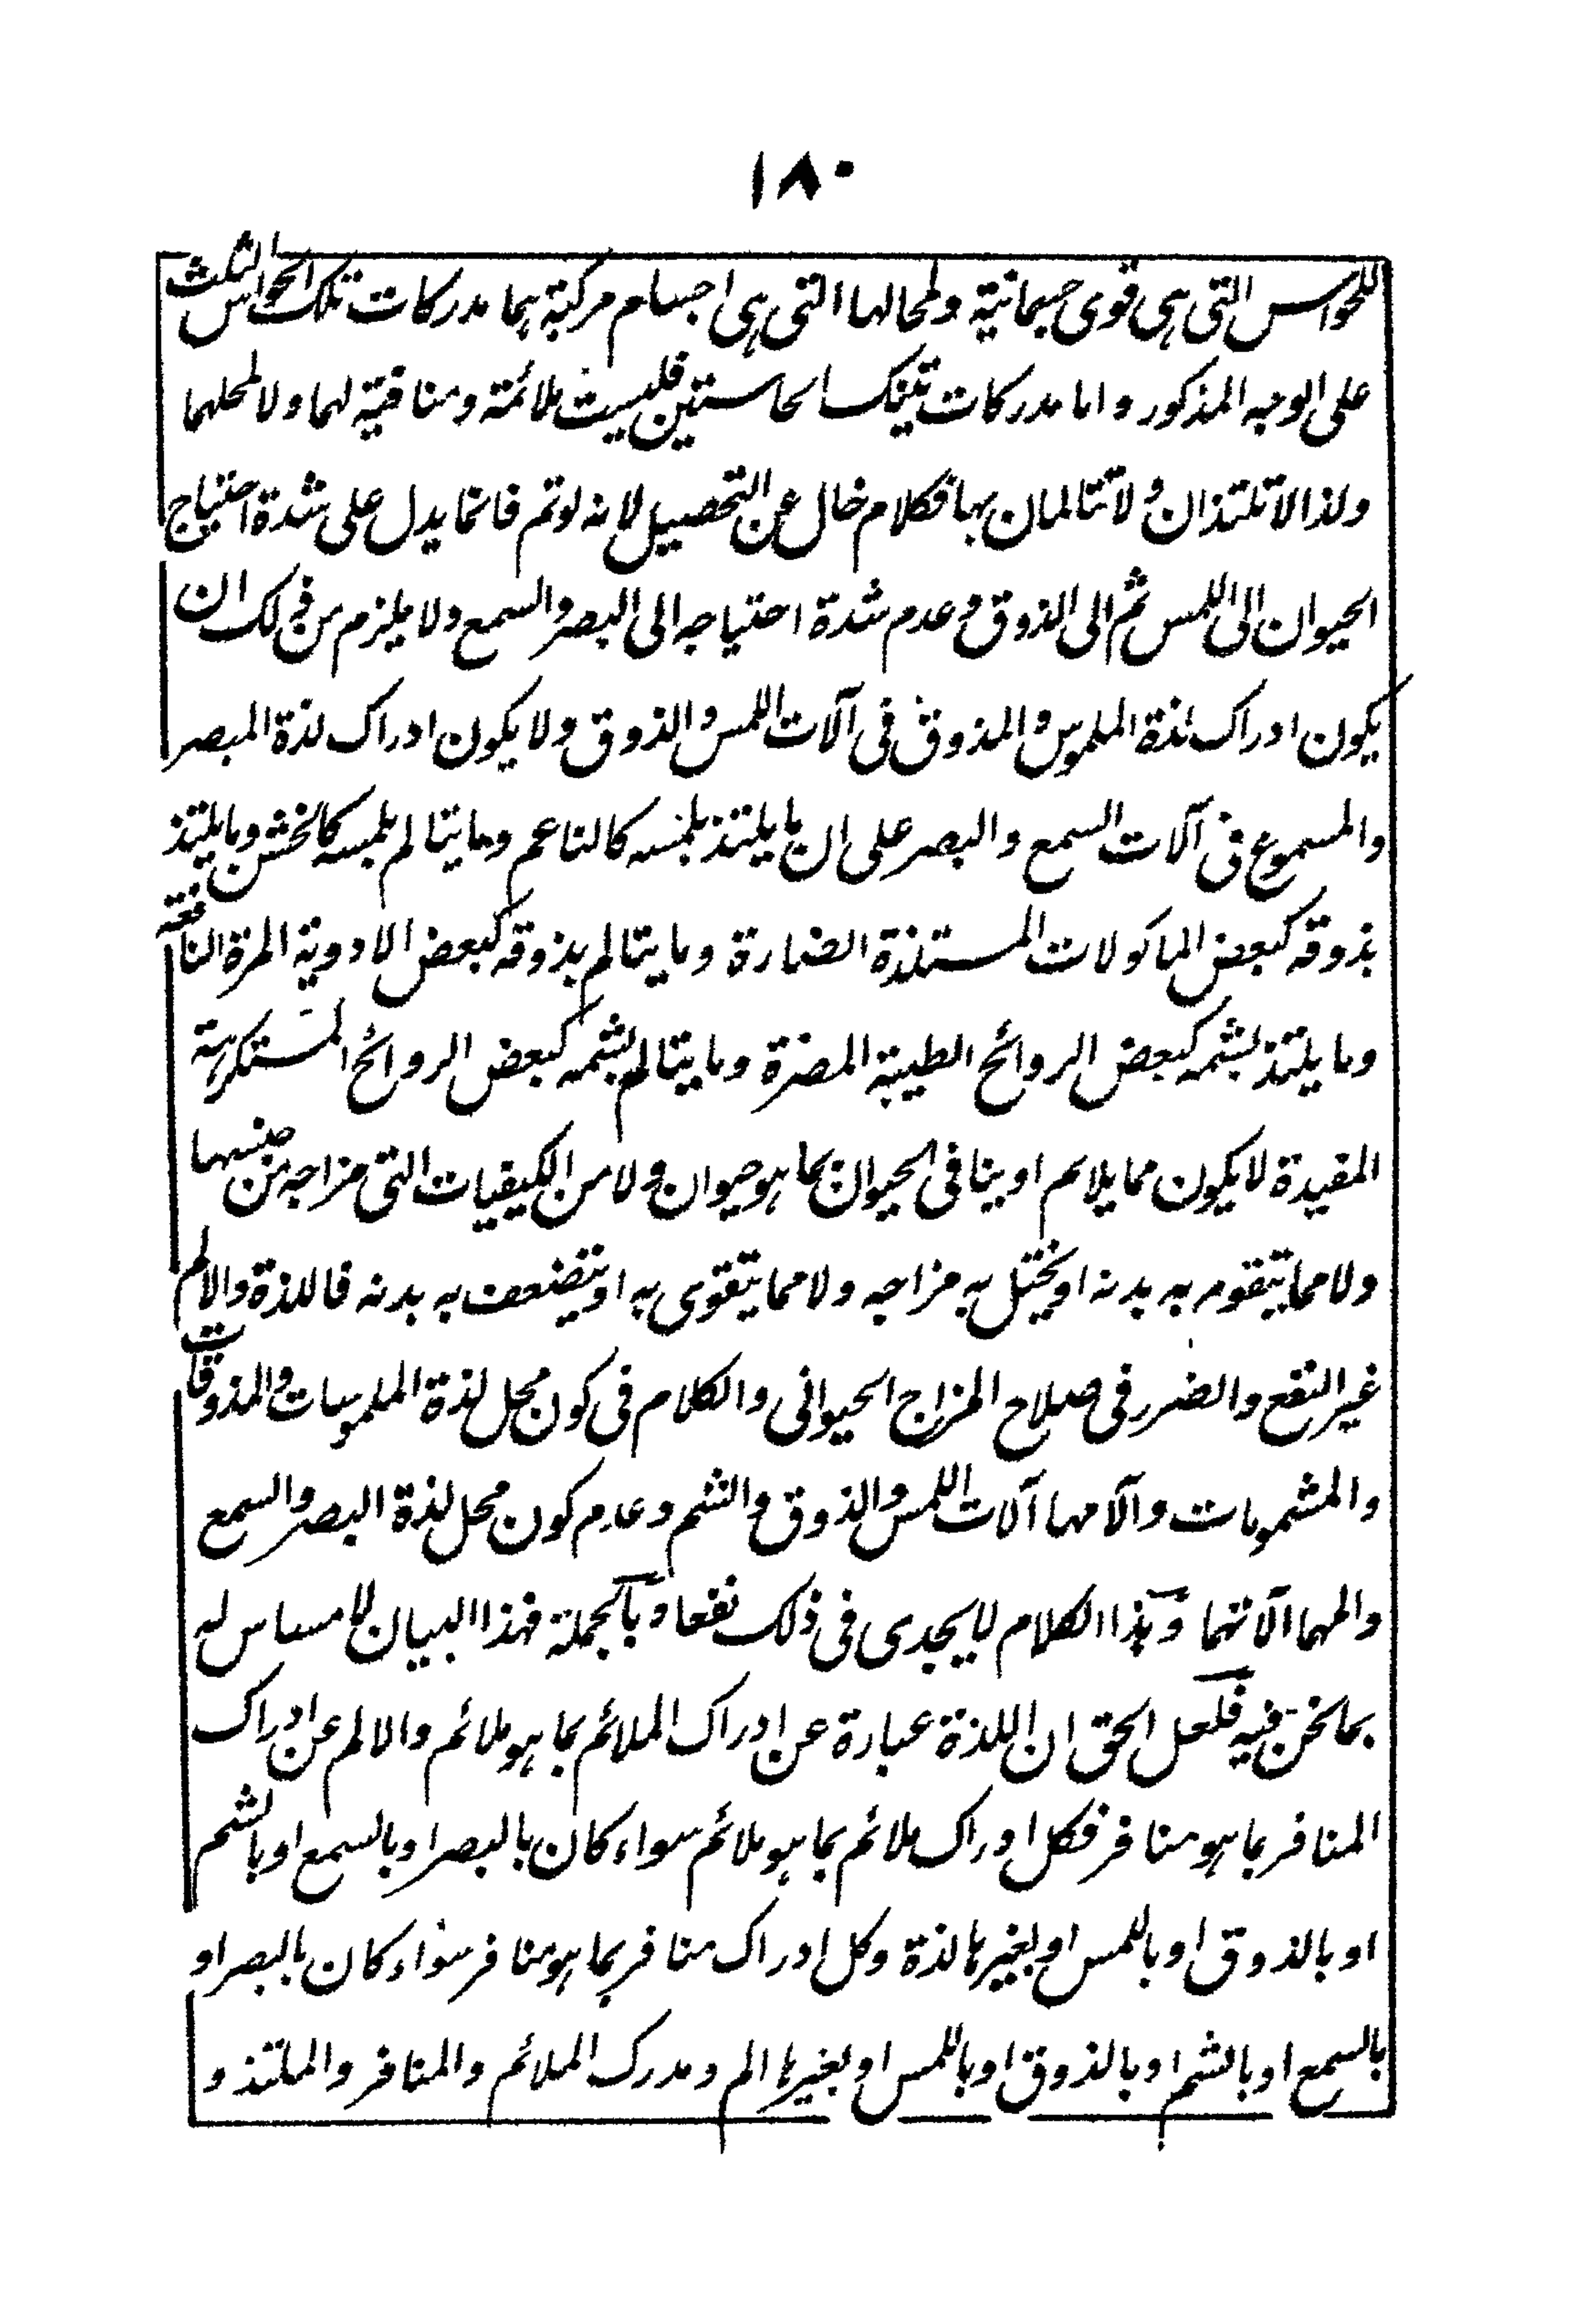 ١٨٠
للحواس التى هى قوى جسمانية ولمحالها التى هى اجسام مركبة بهما مدركات تلك الحواس الثلث
على الوجه المذكور واما مدركات تينك الحاستين فليست ملائمة ومنافية لهما ولا لمحلهما
ولذا لا تلتذان ولا تتالمان بها فكلام خال عن التحصيل لانه لو تم فانما يدل على شدة احتياج
الحيوان الى اللمس ثم الى الذوق وعدم شدة احتياجه الى البصر والسمع ولا يلزم من ذلك ان
يكون ادراك لذة الملموس والمذوق فى آلات اللمس والذوق ولا يكون ادراك لذة المبصر
والمسموع فى آلات السمع والبصر على ان ما يلتذ بلمسه كالناعم وما يتالم بلمسه كالخشن وما يلتذ
بذوقه كبعض الماكولات المستلذة الضارة وما يتالم بذوقه كبعض الادوية المرة النافعة
وما يلتذ بشمه كبعض الروائح الطيبة المضرة وما يتالم بشمه كبعض الروائح المستكرهة
المفيدة لا يكون مما يلائم او ينافى الحيوان بما هو حيوان ولا من الكيفيات التى مزاجه من جنسها
ولا مما يتقوم به بدنه او يختل به مزاجه ولا مما يتقوى به او يتضعف به بدنه فاللذة والالم
غير النفع والضرر فى صلاح المزاج الحيوانى والكلام فى كون محل لذة الملموسات والمذوقات
والمشمومات وآلامها آلات اللمس والذوق والشم وعدم كون محل لذة البصر والسمع
والمهما آلاتهما وهذا الكلام لا يجدى فى ذلك نفعا وبالجملة فهذا البيان لا مساس له
بما نحن فيه فلعل الحق ان اللذة عبارة عن ادراك الملائم بما هو ملائم والالم عن ادراك
المنافر بما هو منافر فكل ادراك ملائم بما هو ملائم سواء كان بالبصر او بالسمع او بالشم
او بالذوق او باللمس او بغيرها لذة وكل ادراك منافر بما هو منافر سواء كان بالبصر او
بالسمع او بالشم او بالذوق او باللمس او بغيرها الم ومدرك الملائم والمنافر والملتذ و